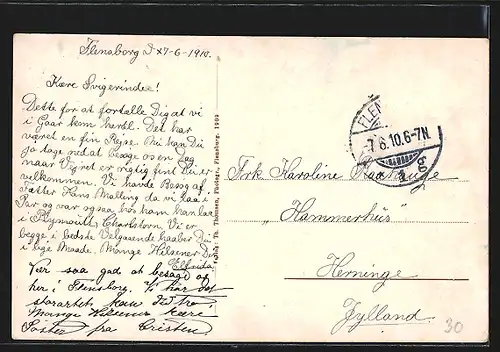 Flensborg D 7-6-1910.
Kære Svigerinde!
Dette for at fortælle Dig at vi
i Gaar kom hertil. Det har
været en fin Rejse. Nu maa Du
jo tage ned at besøge os en Dag
naar Vejret er rigtig fint Du er
velkommen. Vi havde Besøg af
Fætter Hans Malling da vi laa i
og var ogsaa hos ham han laa
i Plymouth, Charlstown. Vi er
begge i bedste Velgaaende haaber Du
i lige Maade. Mange Hilsener Din
Elfrida
Vær saa god at besøge os
her i Flensborg. Vi har det
storartet kan Du tro
Mange Hilsener kære
Søster fra Cristen.
Verlag: Th. Thomsen, Photogr., Flensburg. 1909
FLEN
-7.6.10.6-7N.
Frk Karoline
"Hammerhus"
Herninge
Jylland.
30